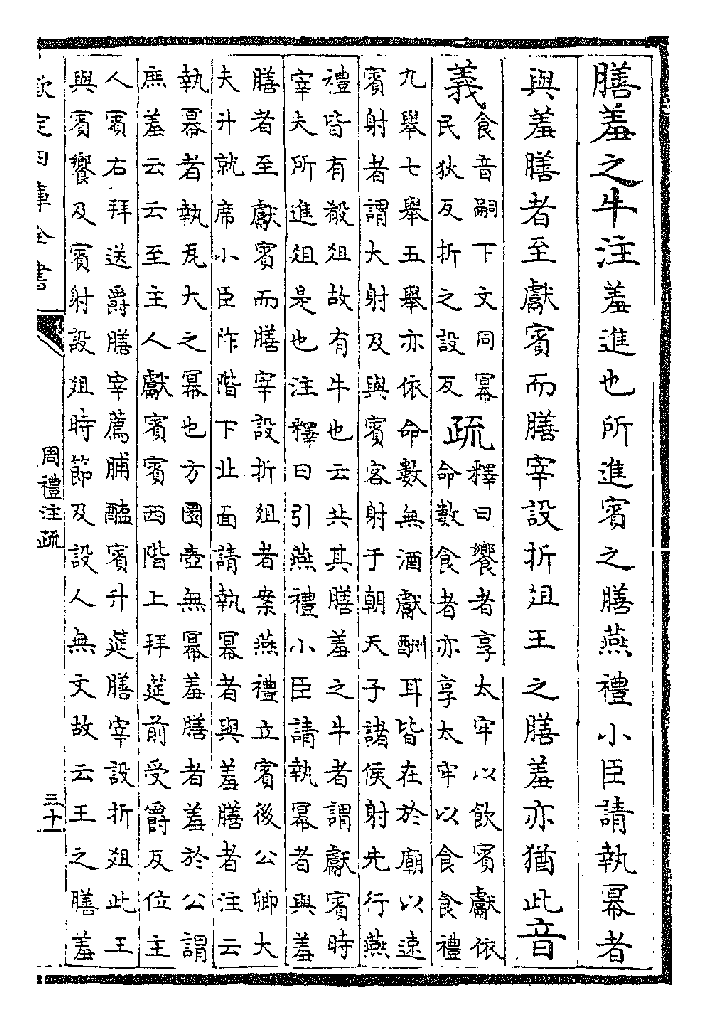 膳羞之牛注羞進也所進賓之膳燕禮小臣請執冪者
與羞膳者至獻賓而膳宰設折俎王之膳羞亦猶此音
義食音嗣下文同冪
民狄反折之設反
疏釋曰饗者享太牢以飲賓獻依
命數食者亦享太牢以食食禮
九舉七舉五舉亦依命數無酒獻酬耳皆在於廟以速
賓射者謂大射及與賓客射于朝天子諸侯射先行燕
禮皆有殽俎故有牛也云共其膳羞之牛者謂獻賓時
宰夫所進俎是也注釋曰引燕禮小臣請執冪者與羞
膳者至獻賓而膳宰設折俎者案燕禮立賓後公卿大
夫升就席小臣阼階下北面請執冪者與羞膳者注云
執冪者執瓦大之冪也方圜壺無冪羞膳者羞於公謂
庶羞云云至主人獻賓賓西階上拜筵前受爵反位主
人賓右拜送爵膳宰薦脯醢賓升筵膳宰設折俎此王
與賓饗及賓射設俎時節及設人無文故云王之膳羞
欽定四庫全書
周禮注疏
三十一